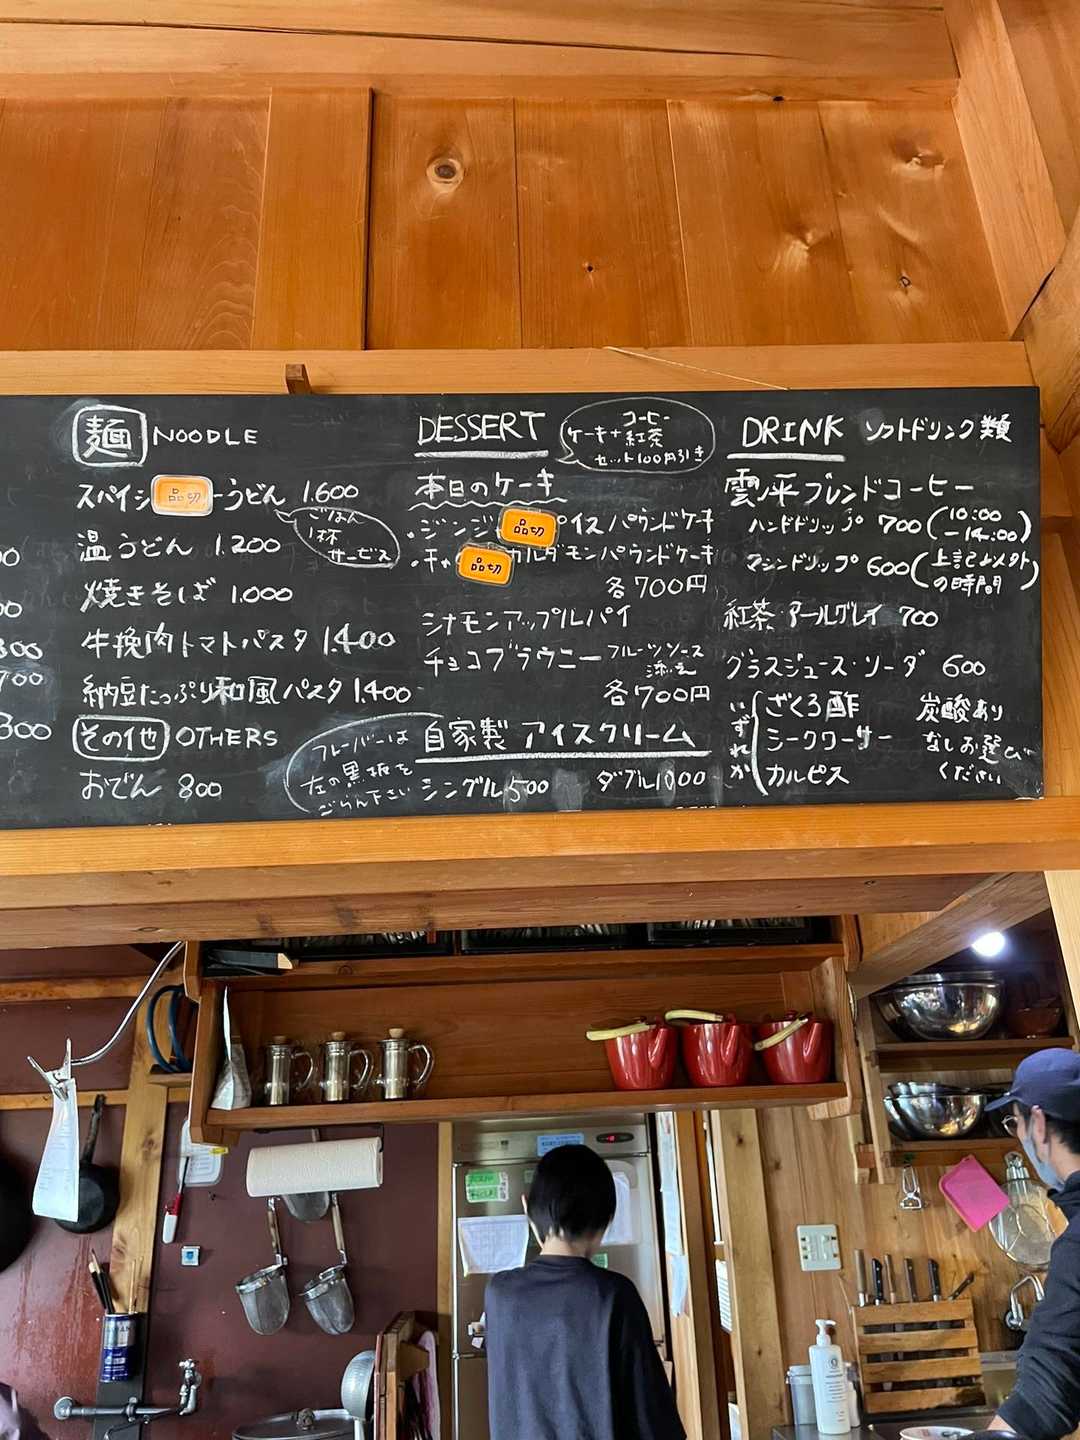 麺 NOODLE
スパイシ 品切 ーうどん 1.600
ごはん
1杯
サービス
温うどん 1.200
焼きそば 1.000
牛挽肉トマトパスタ 1.400
納豆たっぷり和風パスタ 1.400
その他 OTHERS
おでん 800
00
00
300
700
300
DESSERT
コーヒー
ケーキ+紅茶
セット100円引き
本日のケーキ
・ジンジ 品切 パイスパウンドケーキ
・チャ 品切 カルダモンパウンドケーキ
各700円
シナモンアップルパイ
チョコブラウニー フルーツソース
添え
各700円
自家製 アイスクリーム
フレーバーは
左の黒板を
ごらん下さい
シングル500 ダブル1000
DRINK ソフトドリンク類
雲ノ平ブレンドコーヒー
ハンドドリップ 700 (10:00
-14:00)
マシンドリップ 600 (上記以外
の時間)
紅茶・アールグレイ 700
グラスジュース・ソーダ 600
いずれか
ざくろ酢
シークワーサー
カルピス
炭酸あり
なしお選び
ください